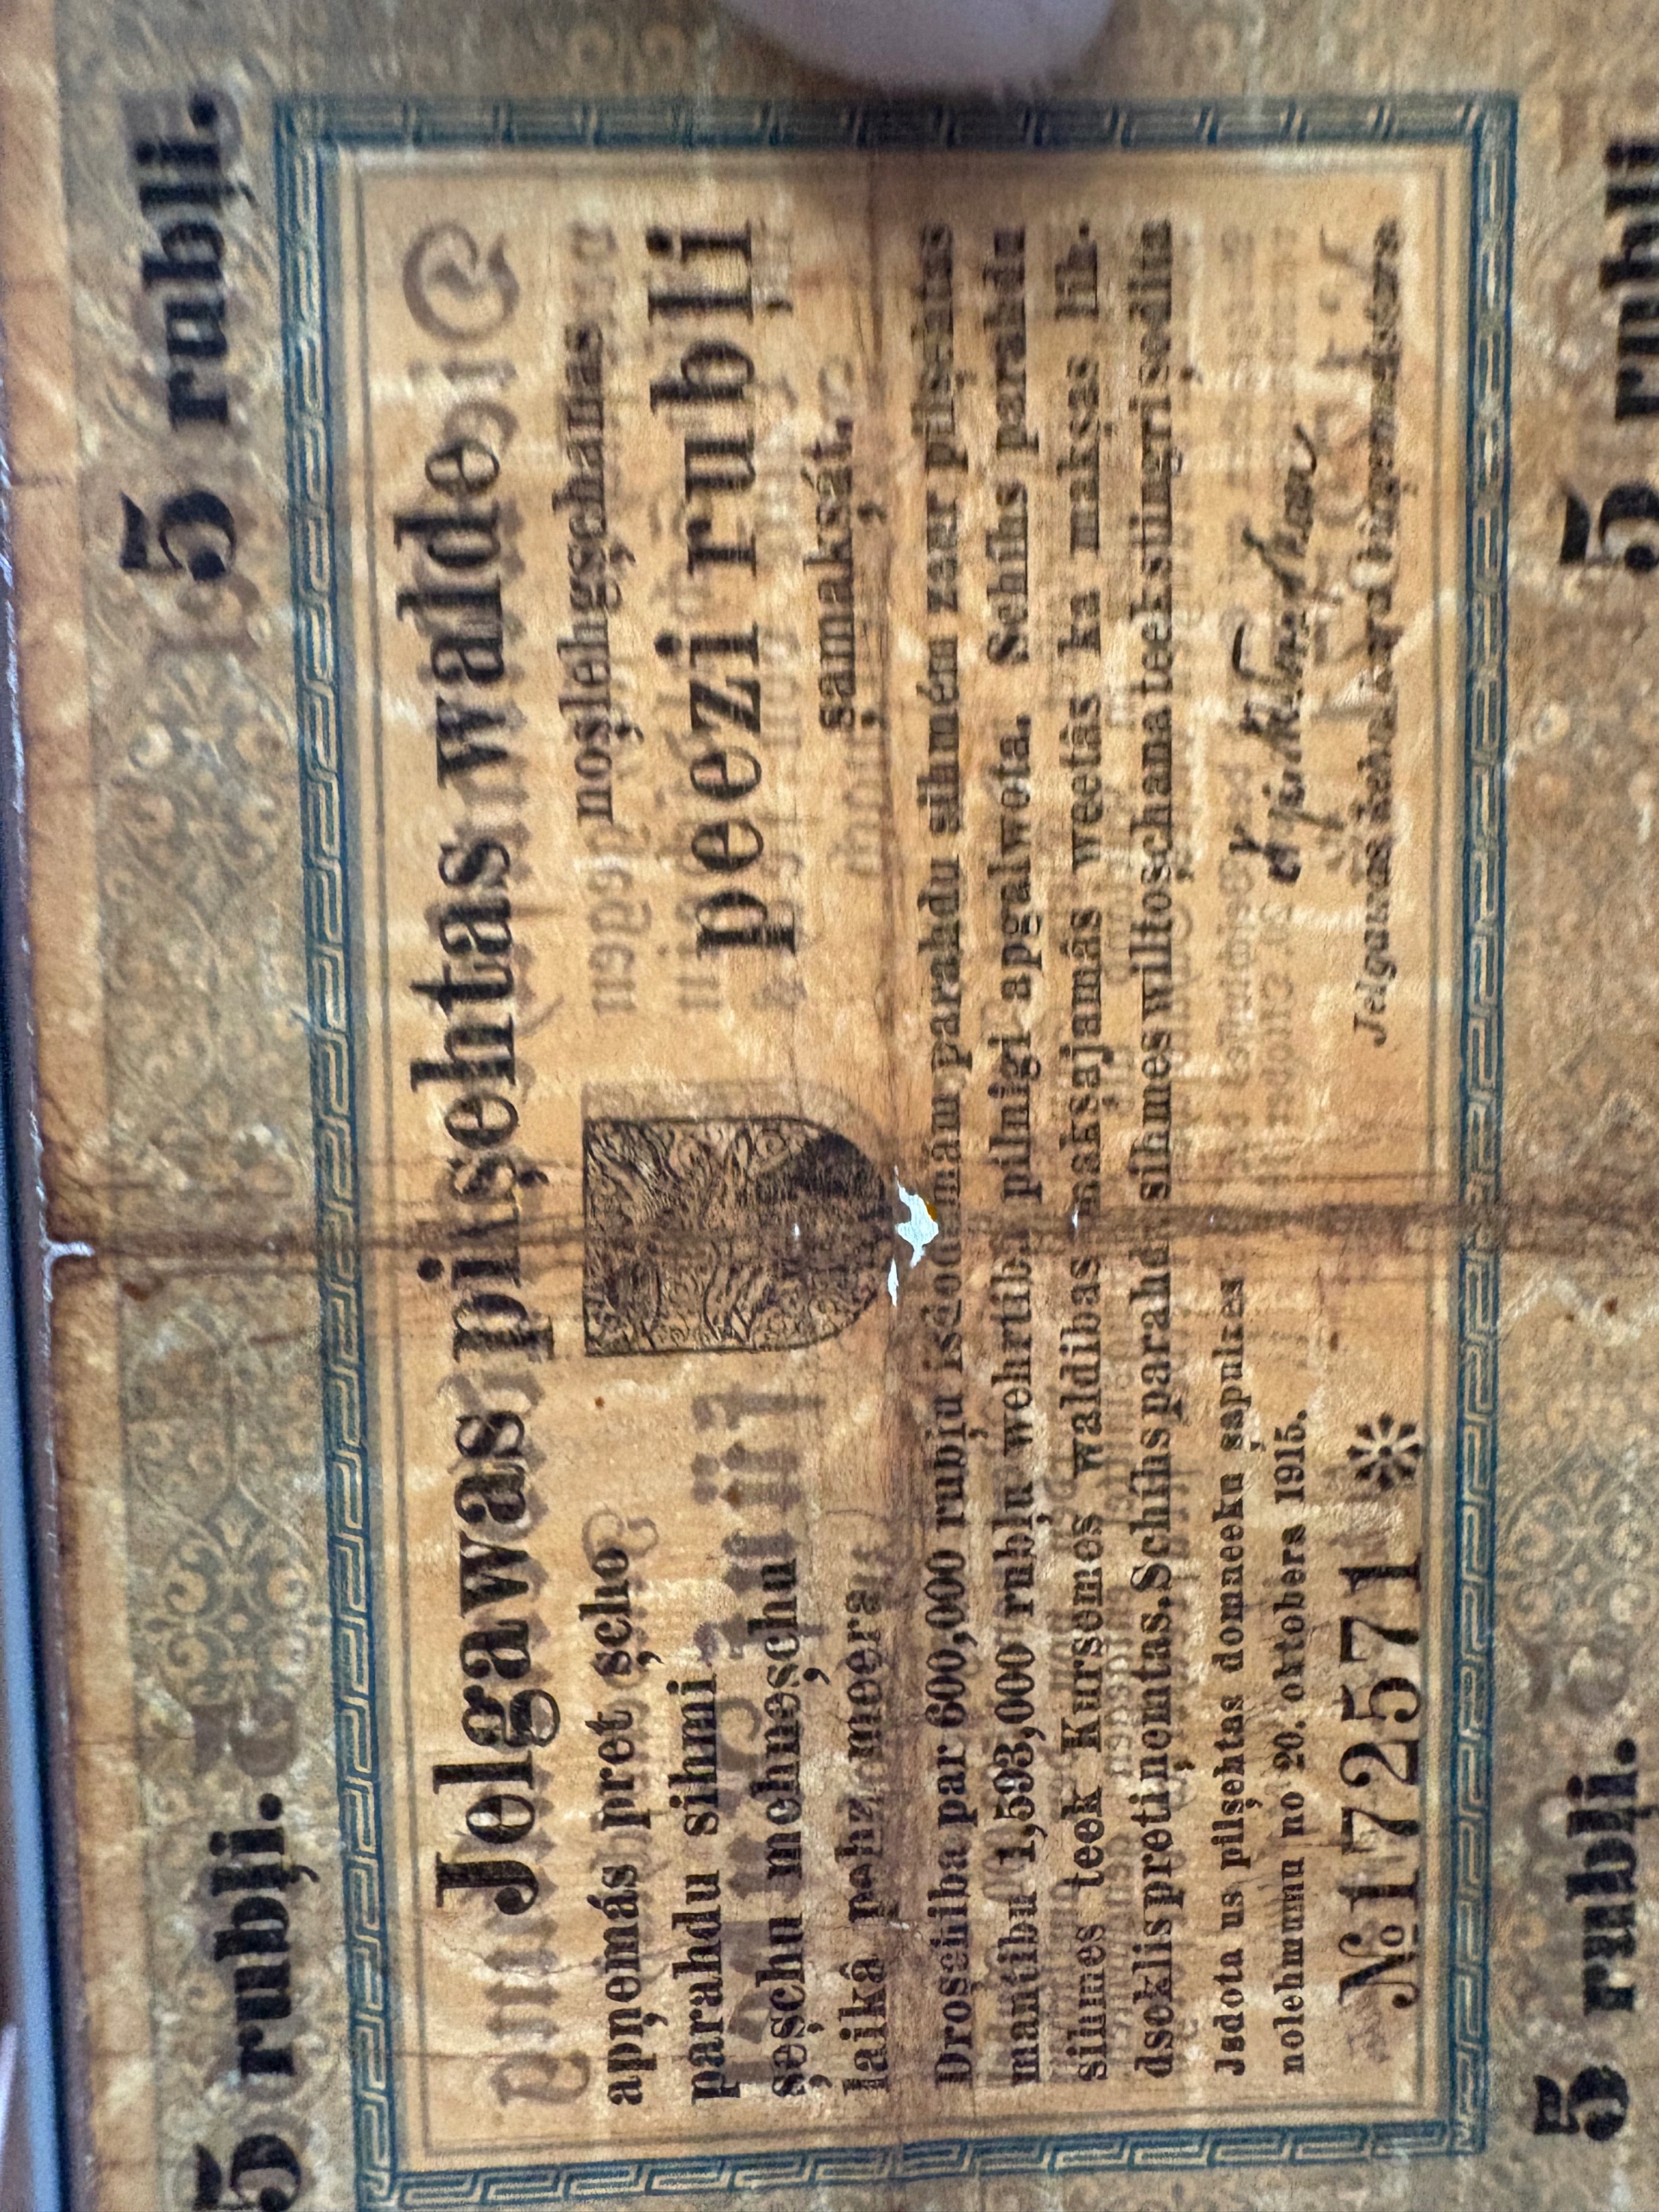 5 rubļi.
5 rubļi.
Jelgawas pilsehtas walde
apņemás pret scho
parahdu sihmi
seschu mehneschu
laikâ pehz meera
noslehgschanas
peezi rubļi
samaksát.
Droschiba par 600,000 rubļu isdodmám parahdu sihmém zaur pilsehtas
mantibu 1,593,000 rubļu wehrtibá pilnigi apgalwota. Schihs parahdu
sihmes teek Kursemes waldibas maksajamás weetás ka maksas lih-
dseklis pretiņemtas. Schihs parahdu sihmes wiltoschana teek stingri sodita
Jsdota us pilsehtas domneeku sapulzes
nolehmumu no 20. oktobera 1915.
№ 172571
Jelgawas
5 rubļi.
5 rubļi